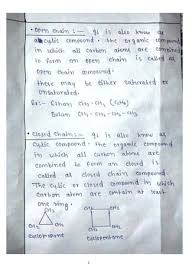 • Open chain :— It is also know as
acyclic compound. The organic compound
in which all carbon atoms are combined
to form an open chain is called as
open chain compound.
These may be either saturated or
unsaturated.
Ex:- Ethane CH₃-CH₃ (C₂H₆)
CH₃-CH₂-CH₂-CH₃
• Closed Chain :- It is also know as
cyclic compound. The organic compound
in which all carbon atoms are
combined to form an closed is
called as closed chain compound.
The cyclic or closed compound in which
carbon atoms are contain at least
one ring.
CH₂ CH₂ CH₂
CH₂ CH₂ CH₂ CH₂
cyclopropane